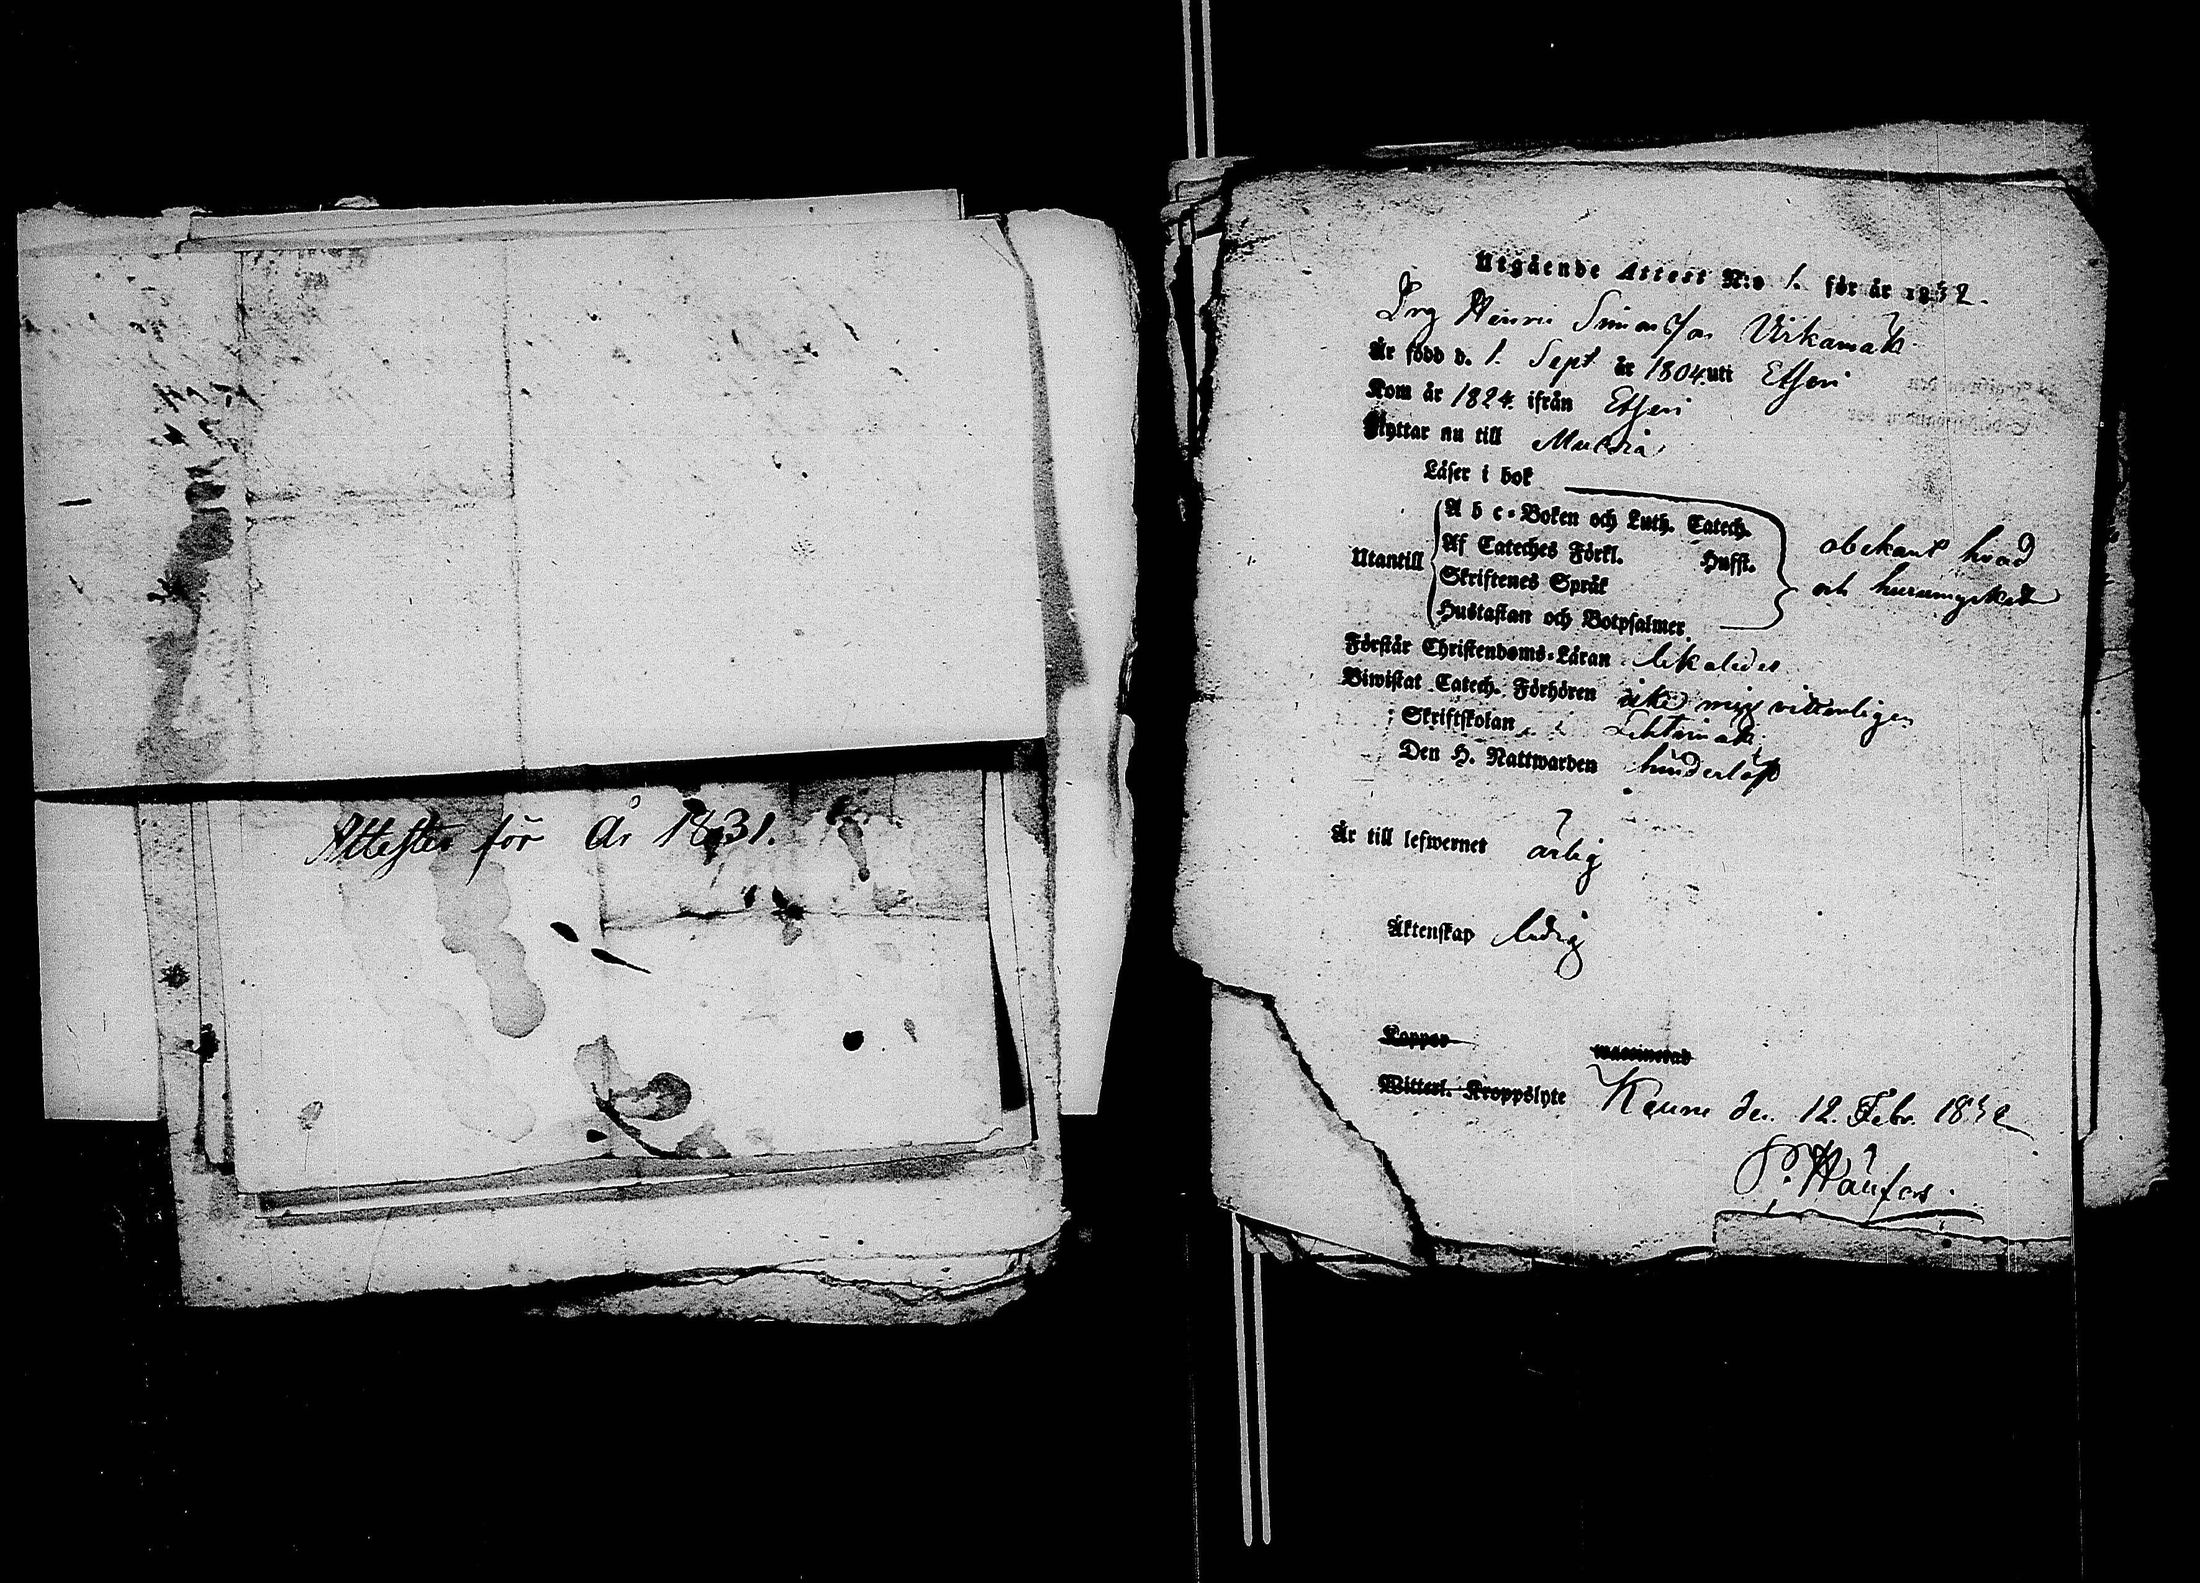 Attester för År 1831.
Utgående Attest N:o 1. för år 1832.
Drg Henric Simonsson
Är född d. 1. Sept år 1804. uti Etseri
Kom år 1824. ifrån Etseri
Flyttar nu till Multia
Läser i bok
A b c-Boken och Luth. Catech.
Af Cateches Förkl. Husst.
Utantill
Skriftenes Språk
Hustaflan och Botpsalmer
obekant hvad
och huru mycket
Förstår Christendoms-Läran likaledes
Biwistat Catech. Förhören icke mig vitterligen
Skriftskolan
Den H. Nattwarden
Är till lefwernet ärlig
Äktenskap ledig
Koppor waccinerad
Witterl. Kroppslyte
den 12. Febr. 1832